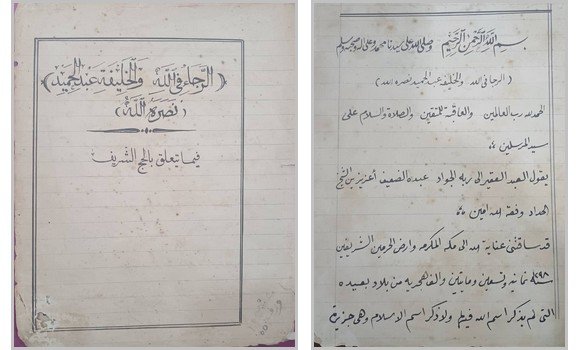 (الرجاء في الله والخليفة عبد الحميد)
(نصره الله)
فيما يتعلق بالحج الشريف
بسم الله الرحمن الرحيم وصلى الله على سيدنا محمد وعلى اله وصحبه وسلم
(الرجا في الله والخليفة عبد الحميد نصره الله)
الحمد لله رب العالمين والعاقبة للمتقين والصلاة والسلام على
سيد المرسلين
يقول العبد الفقير الى ربه الجواد عبده الضعيف أعزيز بن الشيخ
الحداد وفقه الله امين
قد ساقتني عناية الله الى مكة المكرمه وارض الحرمين الشريفين
سنة ١٢٩٨ ثمانيه وتسعين ومايتين والف هجريه من بلاد بعيده
التي لم يذكر اسم الله فيها ولا ذكر اسم الاسلام وهي جزيرة